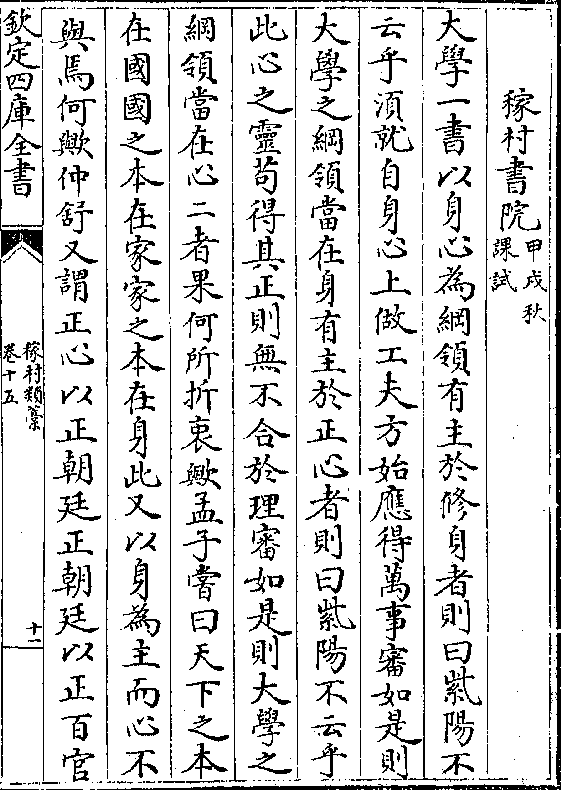 稼村書院甲戌秋課試
大學一書以身心為綱領有主於修身者則曰紫陽不
云乎湏就自身心上做工夫方始應得萬事審如是則
大學之綱領當在身有主於正心者則曰紫陽不云乎
此心之靈苟得其正則無不合於理審如是則大學之
綱領當在心二者果何所折衷歟孟子嘗曰天下之本
在國國之本在家家之本在身此又以身為主而心不
與焉何歟仲舒又謂正心以正朝廷正朝廷以正百官
欽定四庫全書
稼村類藁
卷十五
十一